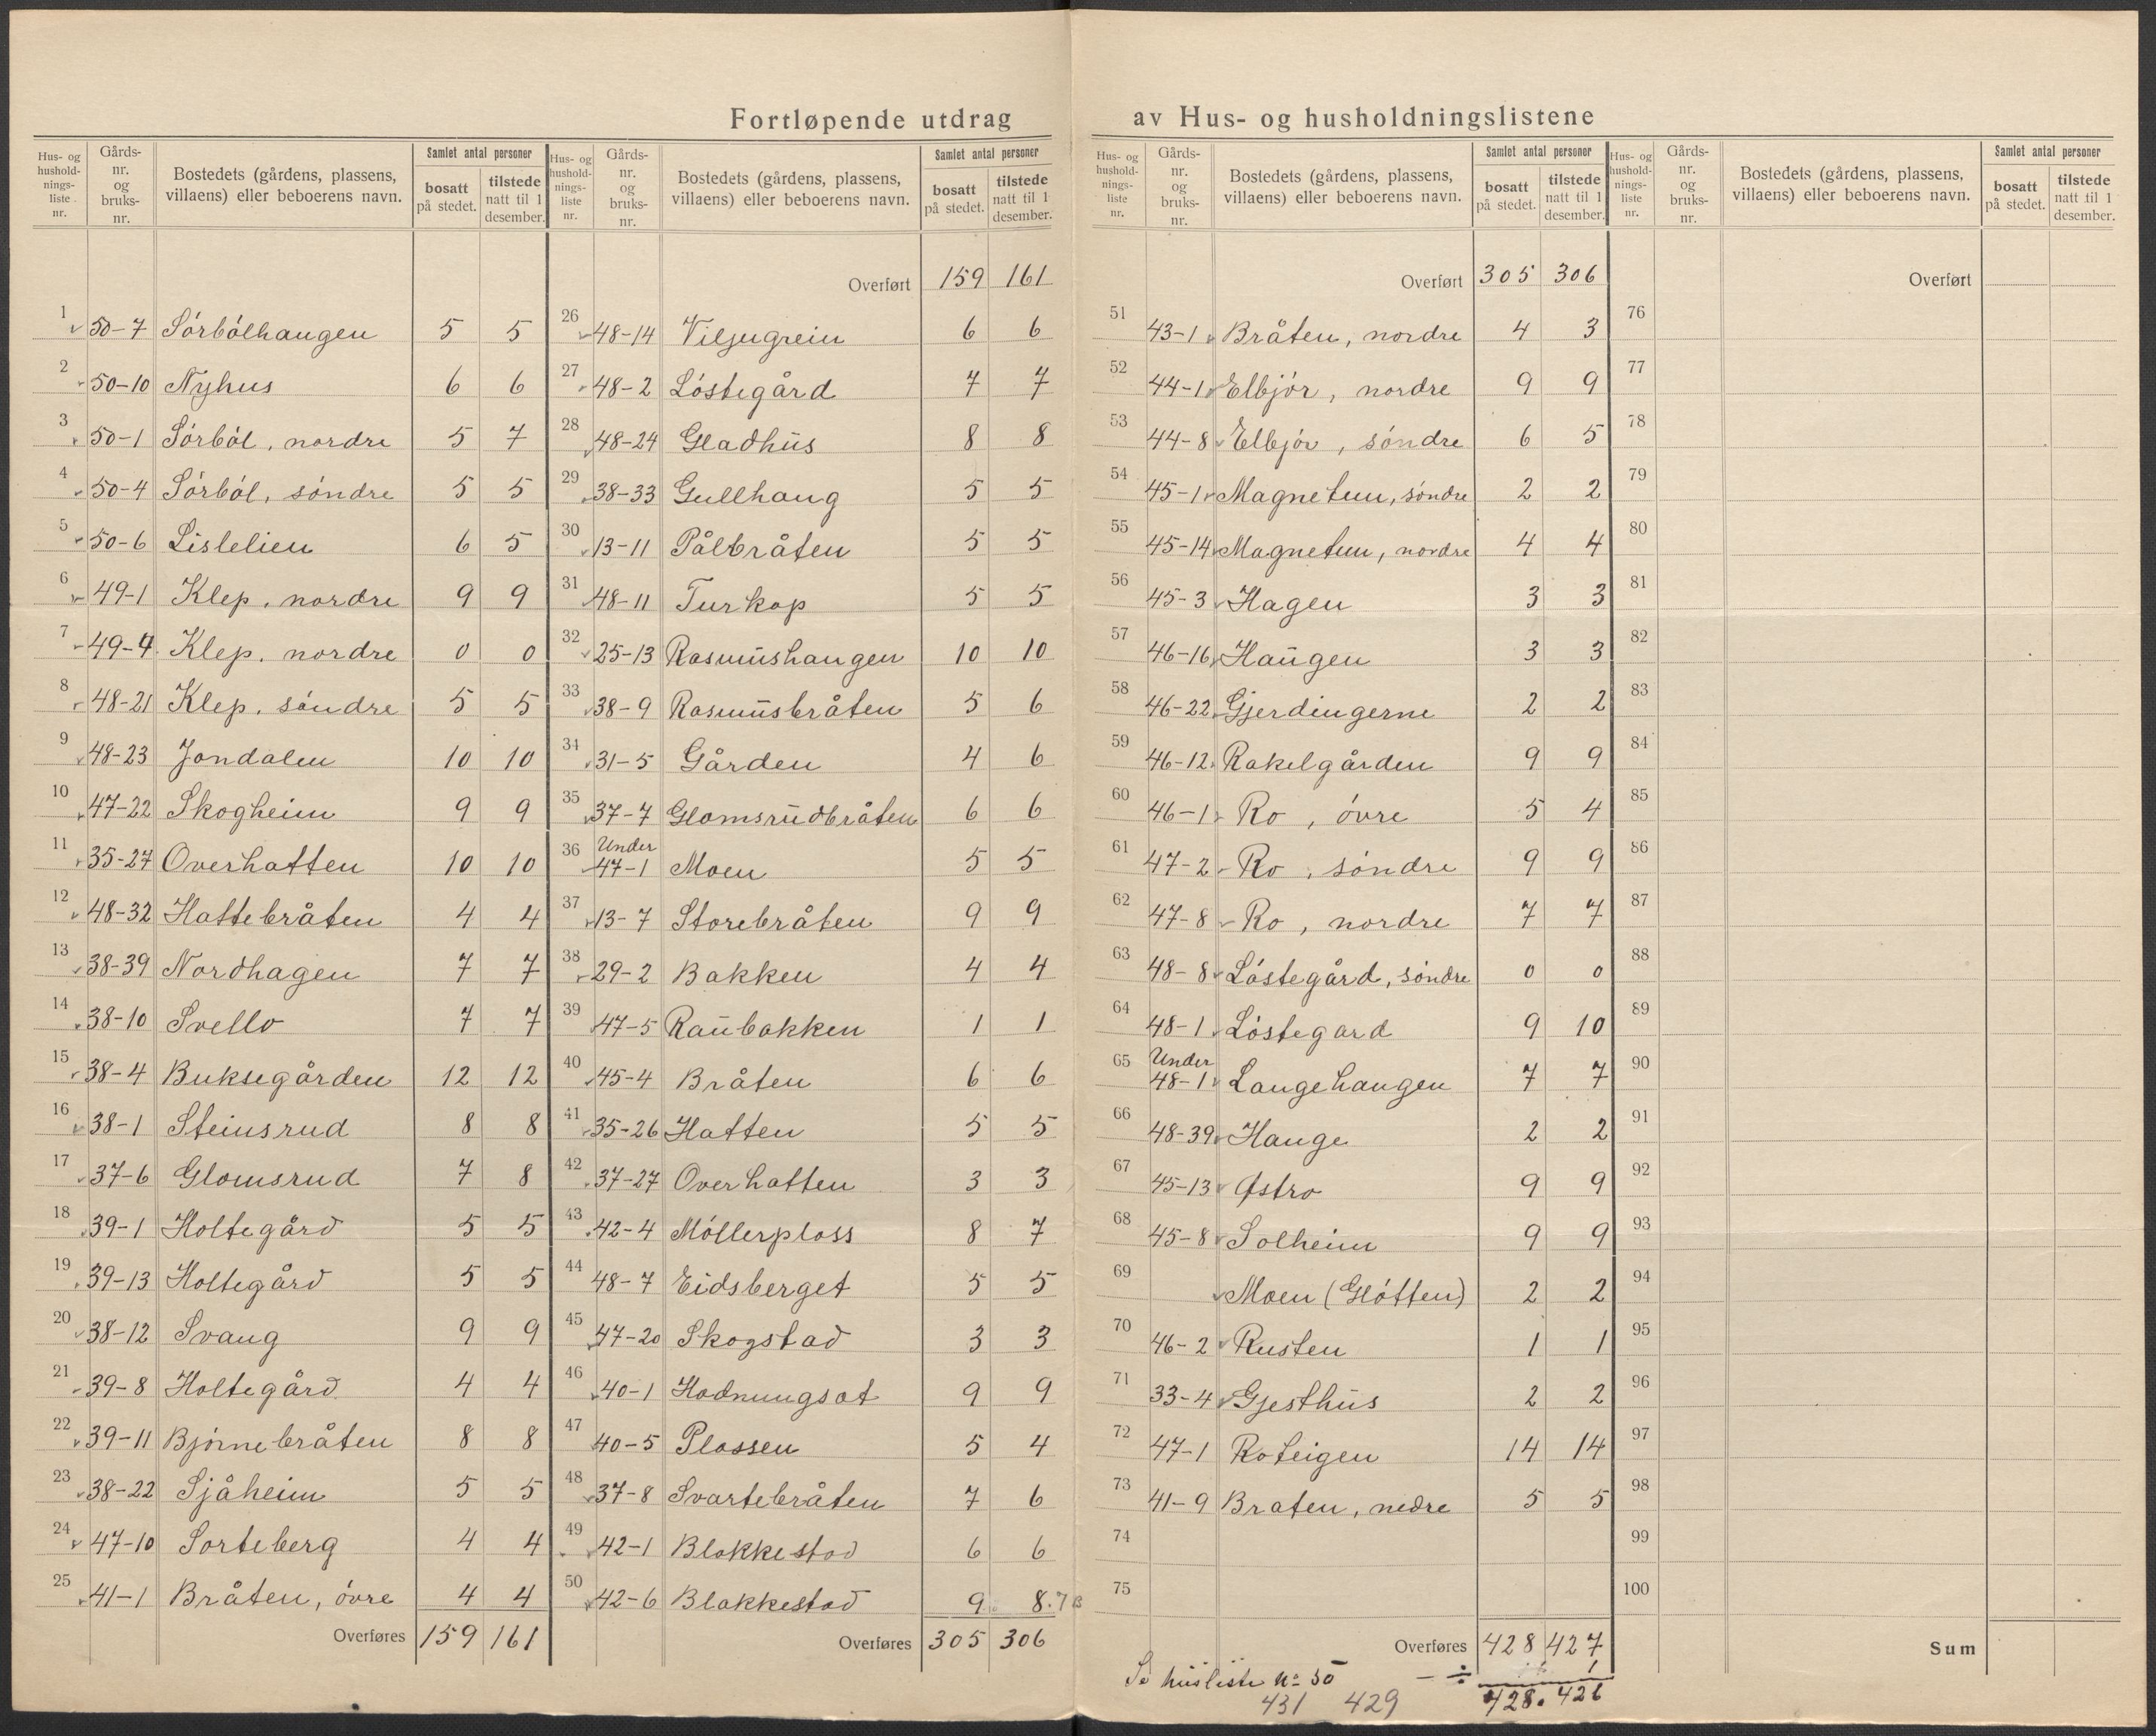 Fortløpende utdrag av Hus- og husholdningslistene
Hus- og husholdnings- liste nr. Gårds- nr. og bruks- nr. Bostedets (gårdens, plassens, villaens) eller beboerens navn. Samlet antal personer bosatt på stedet. tilstede natt til 1 desember.
1 50-7 Sórbólhaugen 5 5
2 50-10 Nyhus 6 6
3 50-1 Sórból, nordre 5 7
4 50-4 Sórból, sóndre 5 5
5 50-6 Lislelien 6 5
6 49-1 Klep, nordre 9 9
7 49-4 Klep, nordre 0 0
8 48-21 Klep, sóndre 5 5
9 48-23 Jondalen 10 10
10 47-22 Skogheim 9 9
11 35-27 Overhatten 10 10
12 48-32 Hattebråten 4 4
13 38-39 Nordhagen 7 7
14 38-10 Svello 7 7
15 38-4 Buksegården 12 12
16 38-1 Steinsrud 8 8
17 37-6 Glomsrud 7 8
18 39-1 Holtegård 5 5
19 39-13 Holtegård 5 5
20 38-12 Svaug 9 9
21 39-8 Holtegård 4 4
22 39-11 Bjórnebråten 8 8
23 38-22 Sjåheim 5 5
24 47-10 Sorteberg 4 4
25 41-1 Bråten, óvre 4 4
Overføres 159 161
Hus- og husholdnings- liste nr. Gårds- nr. og bruks- nr. Bostedets (gårdens, plassens, villaens) eller beboerens navn. Samlet antal personer bosatt på stedet. tilstede natt til 1 desember.
Overført 159 161
26 48-14 Viljugrein 6 6
27 48-2 Lóstegård 7 7
28 48-24 Gladhus 8 8
29 38-33 Gullhaug 5 5
30 13-11 Pålbråten 5 5
31 48-11 Turkop 5 5
32 25-13 Rasmushaugen 10 10
33 38-9 Rasmusbråten 5 6
34 31-5 Gården 4 6
35 37-7 Glomsrudbråten 6 6
36 Under 47-1 Moen 5 5
37 13-7 Storebråten 9 9
38 29-2 Bakken 4 4
39 47-5 Raubakken 1 1
40 45-4 Bråten 6 6
41 35-26 Hatten 5 5
42 37-27 Overhatten 3 3
43 42-4 Móllerplass 8 7
44 48-7 Eidsberget 5 5
45 47-20 Skogstad 3 3
46 40-1 Hodnungsat 9 9
47 40-5 Plassen 5 4
48 37-8 Svartebråten 7 6
49 42-1 Blakkestad 6 6
50 42-6 Blakkestad 9 8.7
Overføres 305 306
Hus- og husholdnings- liste nr. Gårds- nr. og bruks- nr. Bostedets (gårdens, plassens, villaens) eller beboerens navn. Samlet antal personer bosatt på stedet. tilstede natt til 1 desember.
Overført 305 306
51 43-1 Bråten, nordre 4 3
52 44-1 Elbjór, nordre 9 9
53 44-8 Elbjór, sóndre 6 5
54 45-1 Magnetun, sóndre 2 2
55 45-14 Magnetun, nordre 4 4
56 45-3 Hagen 3 3
57 46-16 Haugen 3 3
58 46-22 Gjerdingerne 2 2
59 46-12 Rakelgården 9 9
60 46-1 Ro, óvre 5 4
61 47-2 Ro, sóndre 9 9
62 47-8 Ro, nordre 7 7
63 48-8 Lóstegård, sóndre 0 0
64 48-1 Lóstegard 9 10
65 Under 48-1 Langehaugen 7 7
66 48-39 Hauge 2 2
67 45-13 Østro 9 9
68 45-8 Solheim 9 9
69 Moen (Glótten) 2 2
70 46-2 Rusten 1 1
71 33-4 Gjesthus 2 2
72 47-1 Roteigen 14 14
73 41-9 Braten, nedre 5 5
74
75
Overføres 428 427
Se husliste No 50 - ÷ 1
431 429 428. 426
Hus- og husholdnings- liste nr. Gårds- nr. og bruks- nr. Bostedets (gårdens, plassens, villaens) eller beboerens navn. Samlet antal personer bosatt på stedet. tilstede natt til 1 desember.
Overført
76
77
78
79
80
81
82
83
84
85
86
87
88
89
90
91
92
93
94
95
96
97
98
99
100
Sum